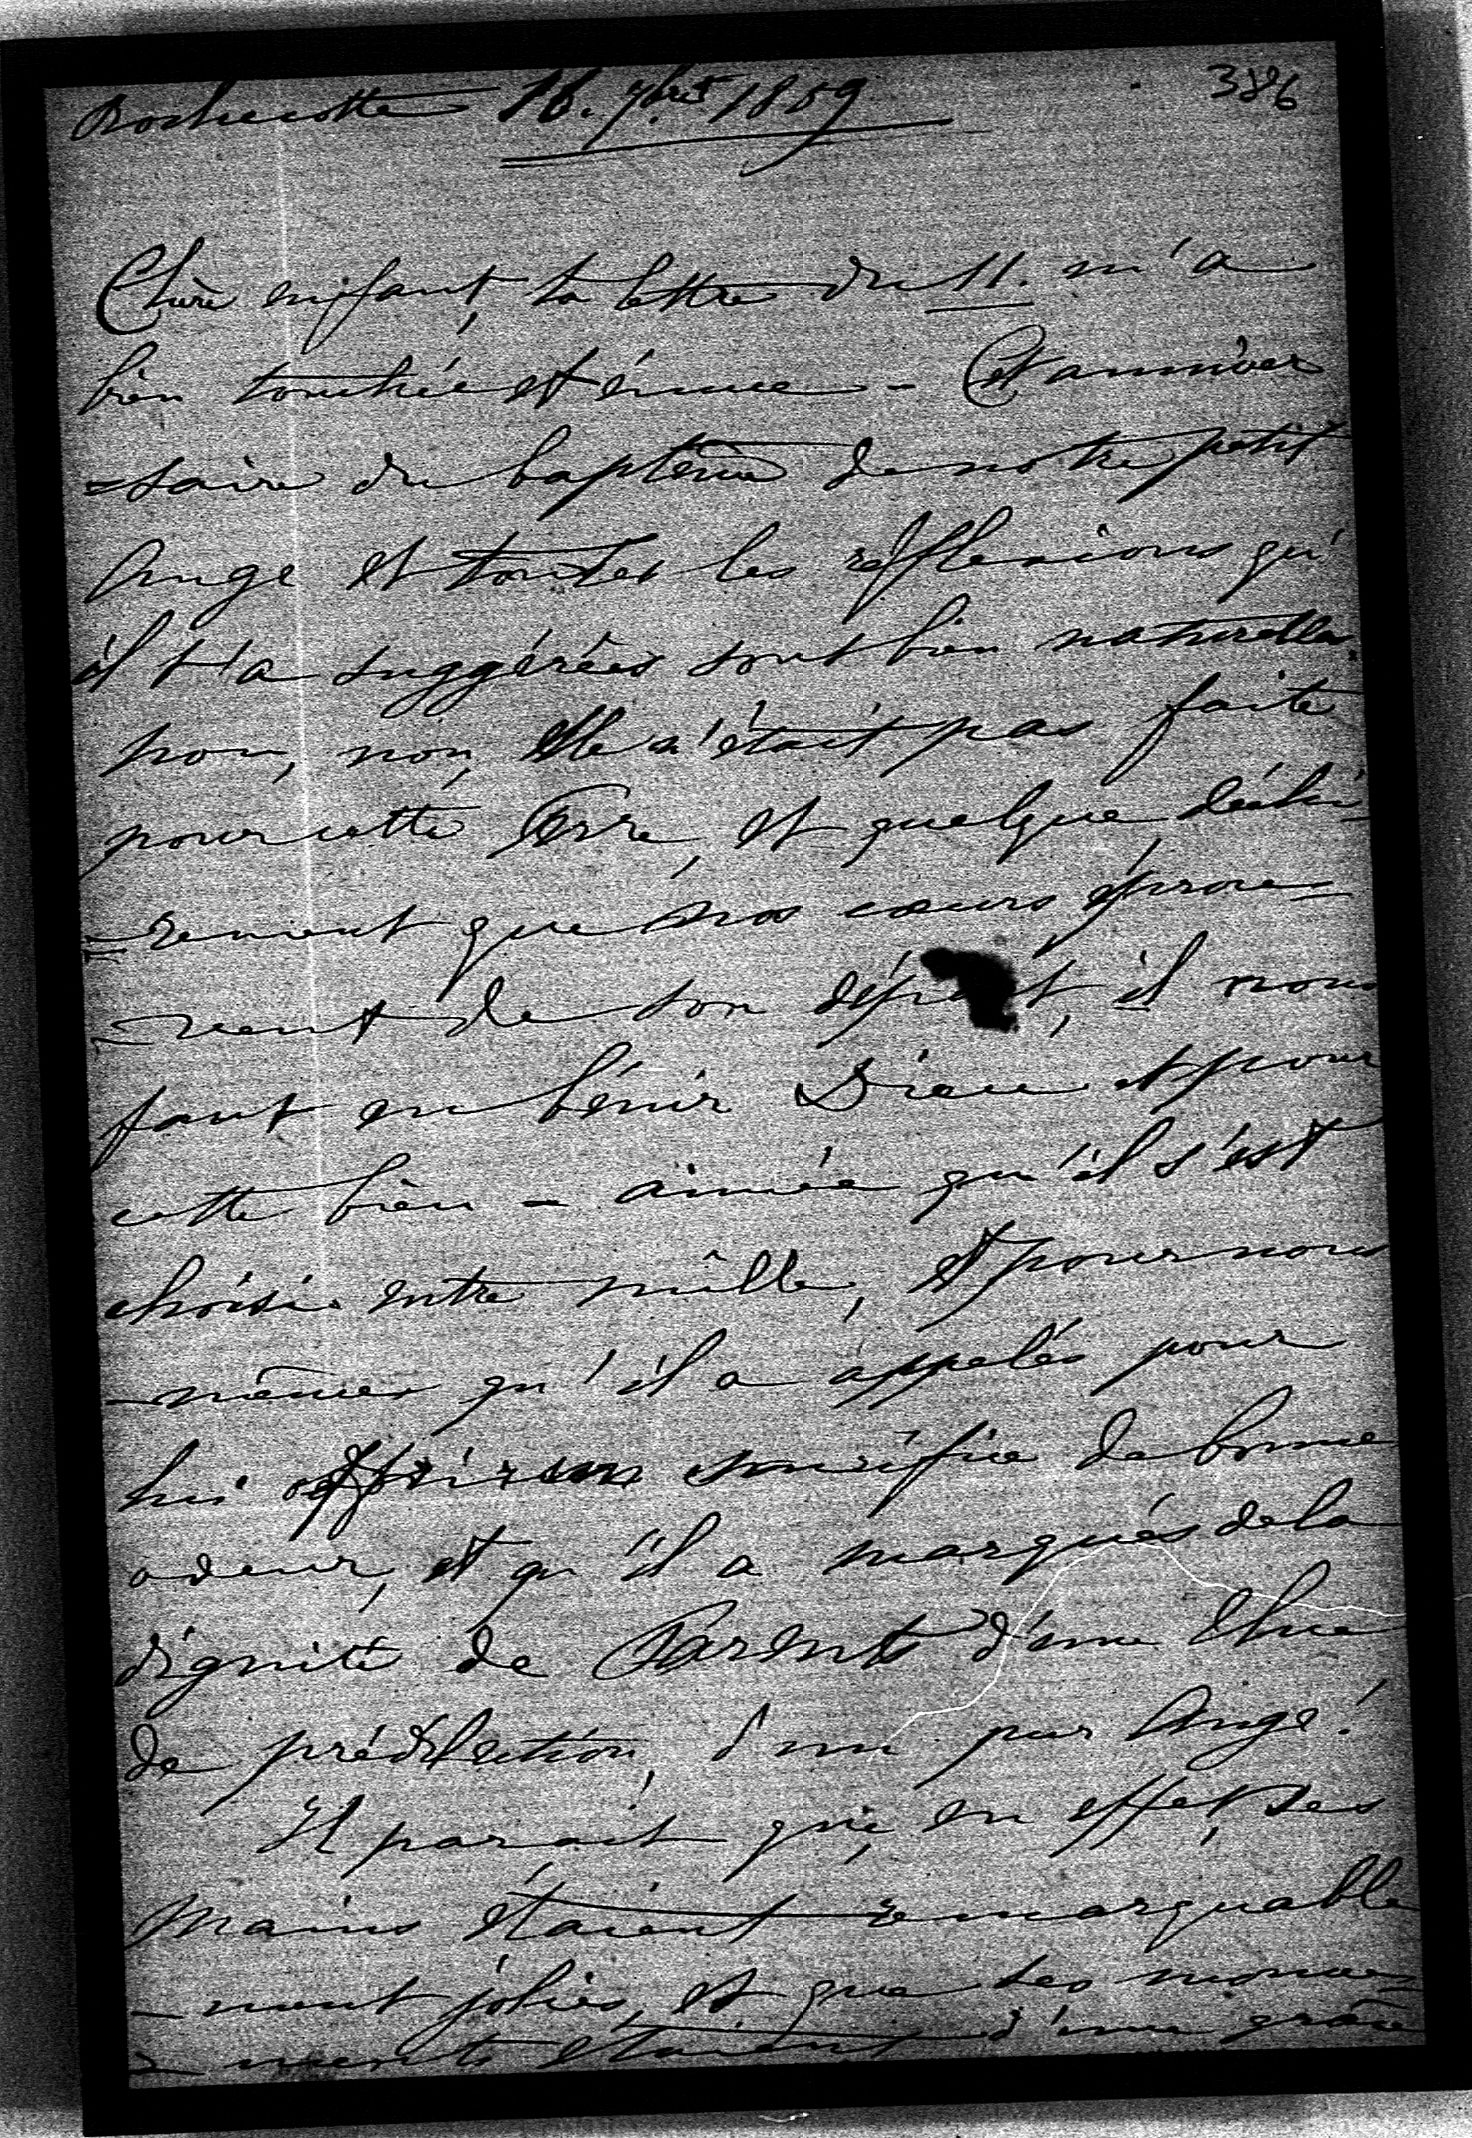 Rochecotte 16. 7bre 1859
386
Chère enfant, ta lettre du 11. m'a
bien touchée et émue - Cet anniver
=saire du baptême de notre petit
Ange et toutes les réflexions qu'
il t'a suggérées sont bien naturelles.
non, non, Elle n'était pas faite
pour cette Terre, et quelque déchi-
=rement que nos cœurs éprou-
=vent de son départ, il nous
faut en bénir Dieu et pour
cette bien-aimée qu'il s'est
choisie entre mille, et pour nous
-mêmes qu'il a appelés pour
lui offrir un sacrifice de bonne
odeur, et qu'il a marqués de la
dignité de Parents d'une Elue
de prédilection, d'un pur Ange!
Il parait que, en effet, ses
mains étaient remarquable
-ment jolies, et que ses mouve-
=ments étaient d'une grâce